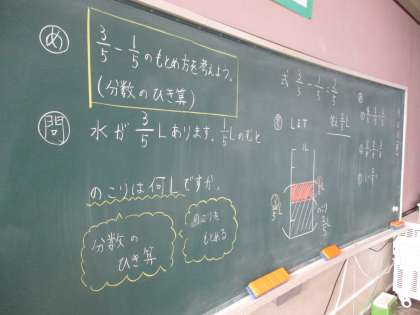 め
3/5 − 1/5 のもとめ方を考えよう。
(分数のひき算)
問
水が 3/5 L あります。1/5 L のむと
のこりは何Lですか。
分数の
ひき算
のこりを
もとめる
式 3/5 − 1/5 = 2/5
Lます
答え 2/5 L
1L
のこり
2/5